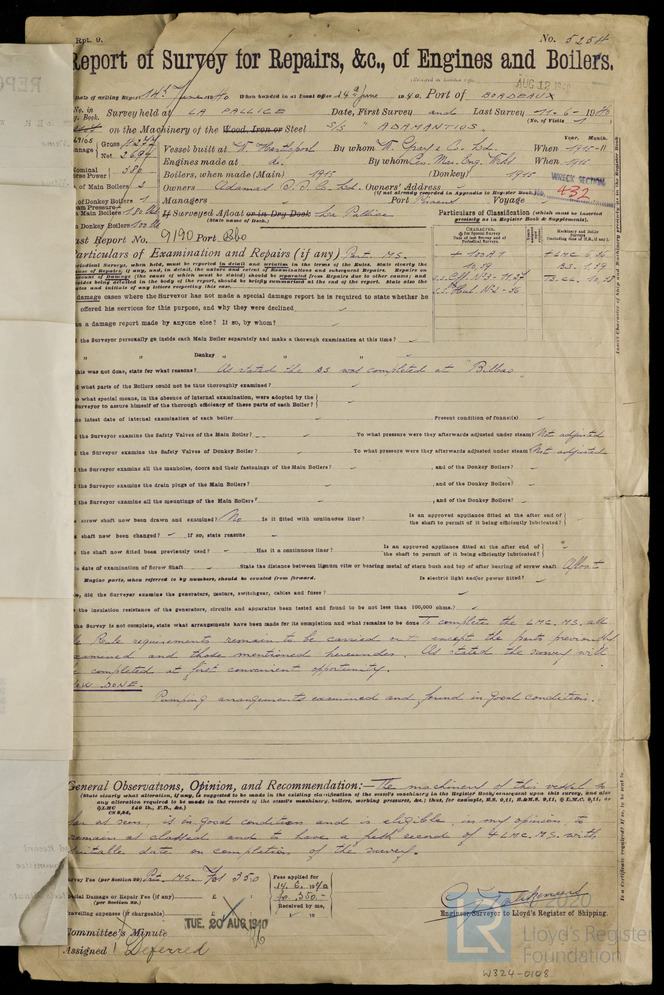 Rpt. 9.
No. 5254
Report of Survey for Repairs, &c., of Engines and Boilers.
AUG 12 1940
Date of writing Report 14th June 1940 When handed in at Local Office 14th June 1940. Port of BORDEAUX
No. in Survey held at LA PALLICE Date, First Survey and Last Survey 11-6-1940
Reg. Book. (No. of Visits 1)
on the Machinery of the Wood, Iron or Steel S/S "ADAMANTIOS"
Gross 4277 Vessel built at W. Hartlepool By whom W. Gray & Co. Ltd. When 1915-11
Net 2694 Engines made at do. By whom Cen. Mar. Eng. Wks When 1915
Nominal Horse Power 384 Boilers, when made (Main) 1915 (Donkey) 1915
No. of Main Boilers 3 Owners Adamas S.S. Co. Ltd. Owners' Address
(if not already recorded in Appendix to Register Book.)
WRECK SECTION
No. 432
No. of Donkey Boilers 1 Managers Port Piraeus Voyage
Steam Pressure
in Main Boilers 180 lbs If Surveyed Afloat or in Dry Dock La Pallice
(State name of Dock.)
in Donkey Boilers
Particulars of Classification (which must be inserted precisely as in Register Book & Supplements).
Last Report No. 9190 Port Bbo
Particulars of Examination and Repairs (if any) Part MS.
+ 100A1
+ LMC 6,36
10,39
BS. 1,39
S.S. No. 2-36
In damage cases where the Surveyor has not made a special damage report he is required to state whether he
offered his services for this purpose, and why they were declined
Was a damage report made by anyone else? If so, by whom?
Did the Surveyor personally go inside each Main Boiler separately and make a thorough examination at this time?
" " Donkey " " "
If this was not done, state for what reasons? As stated the BS was completed at "Bilbao"
And what parts of the Boilers could not be thus thoroughly examined?
Also what special means, in the absence of internal examination, were adopted by the
Surveyor to assure himself of the thorough efficiency of these parts of each Boiler?
State latest date of internal examination of each boiler Present condition of funnel(s)
Did the Surveyor examine the Safety Valves of the Main Boiler? To what pressure were they afterwards adjusted under steam? Not adjusted
Did the Surveyor examine the Safety Valves of Donkey Boiler? To what pressure were they afterwards adjusted under steam? Not adjusted
Did the Surveyor examine all the manholes, doors and their fastenings of the Main Boilers? , and of the Donkey Boilers?
Did the Surveyor examine the drain plugs of the Main Boilers? , and of the Donkey Boilers?
Did the Surveyor examine all the mountings of the Main Boilers? , and of the Donkey Boilers?
Has screw shaft now been drawn and examined? No Is it fitted with continuous liner? Is an approved appliance fitted at the after end of the shaft to permit of it being efficiently lubricated?
Has shaft now been changed? If so, state reasons
Has the shaft now fitted been previously used? Has it a continuous liner? Is an approved appliance fitted at the after end of the shaft to permit of it being efficiently lubricated?
State date of examination of Screw Shaft State the distance between lignum vitæ or bearing metal of stern bush and top of after bearing of screw shaft Afloat
Engine parts, when referred to by numbers, should be counted from forward. Is electric light and/or power fitted?
If so, did the Surveyor examine the generators, motors, switchgear, cables and fuses?
Has the insulation resistance of the generators, circuits and apparatus been tested and found to be not less than 100,000 ohms?
If the Survey is not complete, state what arrangements have been made for its completion and what remains to be done To complete the LMC. MS. all
the Rule requirements remain to be carried out except the parts previously
examined and those mentioned hereunder. As stated the survey will
be completed at first convenient opportunity.
NOW DONE.
Pumping arrangements examined and found in good condition.
General Observations, Opinion, and Recommendation:— The machinery of this vessel so
(State clearly what alteration, if any, is suggested to be made in the existing classification of the vessel's machinery in the Register Book, consequent upon this survey, and also
any alteration required to be made in the records of the vessel's machinery, boilers, working pressures, &c.; thus, for example, B.S. 9,11, B&M.S. 9,11, @ L.M.C. 9,11, or
far as seen, is in good condition and is eligible, in my opinion to
remain as classed and to have a fresh record of +LMC. MS. with
suitable date on completion of the survey.
Survey Fee (per Section 29) Part MS. Frs 350
Fees applied for 14. 6. 1940
Special Damage or Repair Fee (if any) £
(per Section 29.)
Frs 350.-
Travelling expenses (if chargeable) £
Received by me,
19
Engineer Surveyor to Lloyd's Register of Shipping.
TUE. 20 AUG 1940
Committee's Minute
Assigned Deferred
© 2020
Lloyd's Register
Foundation
W324-0108